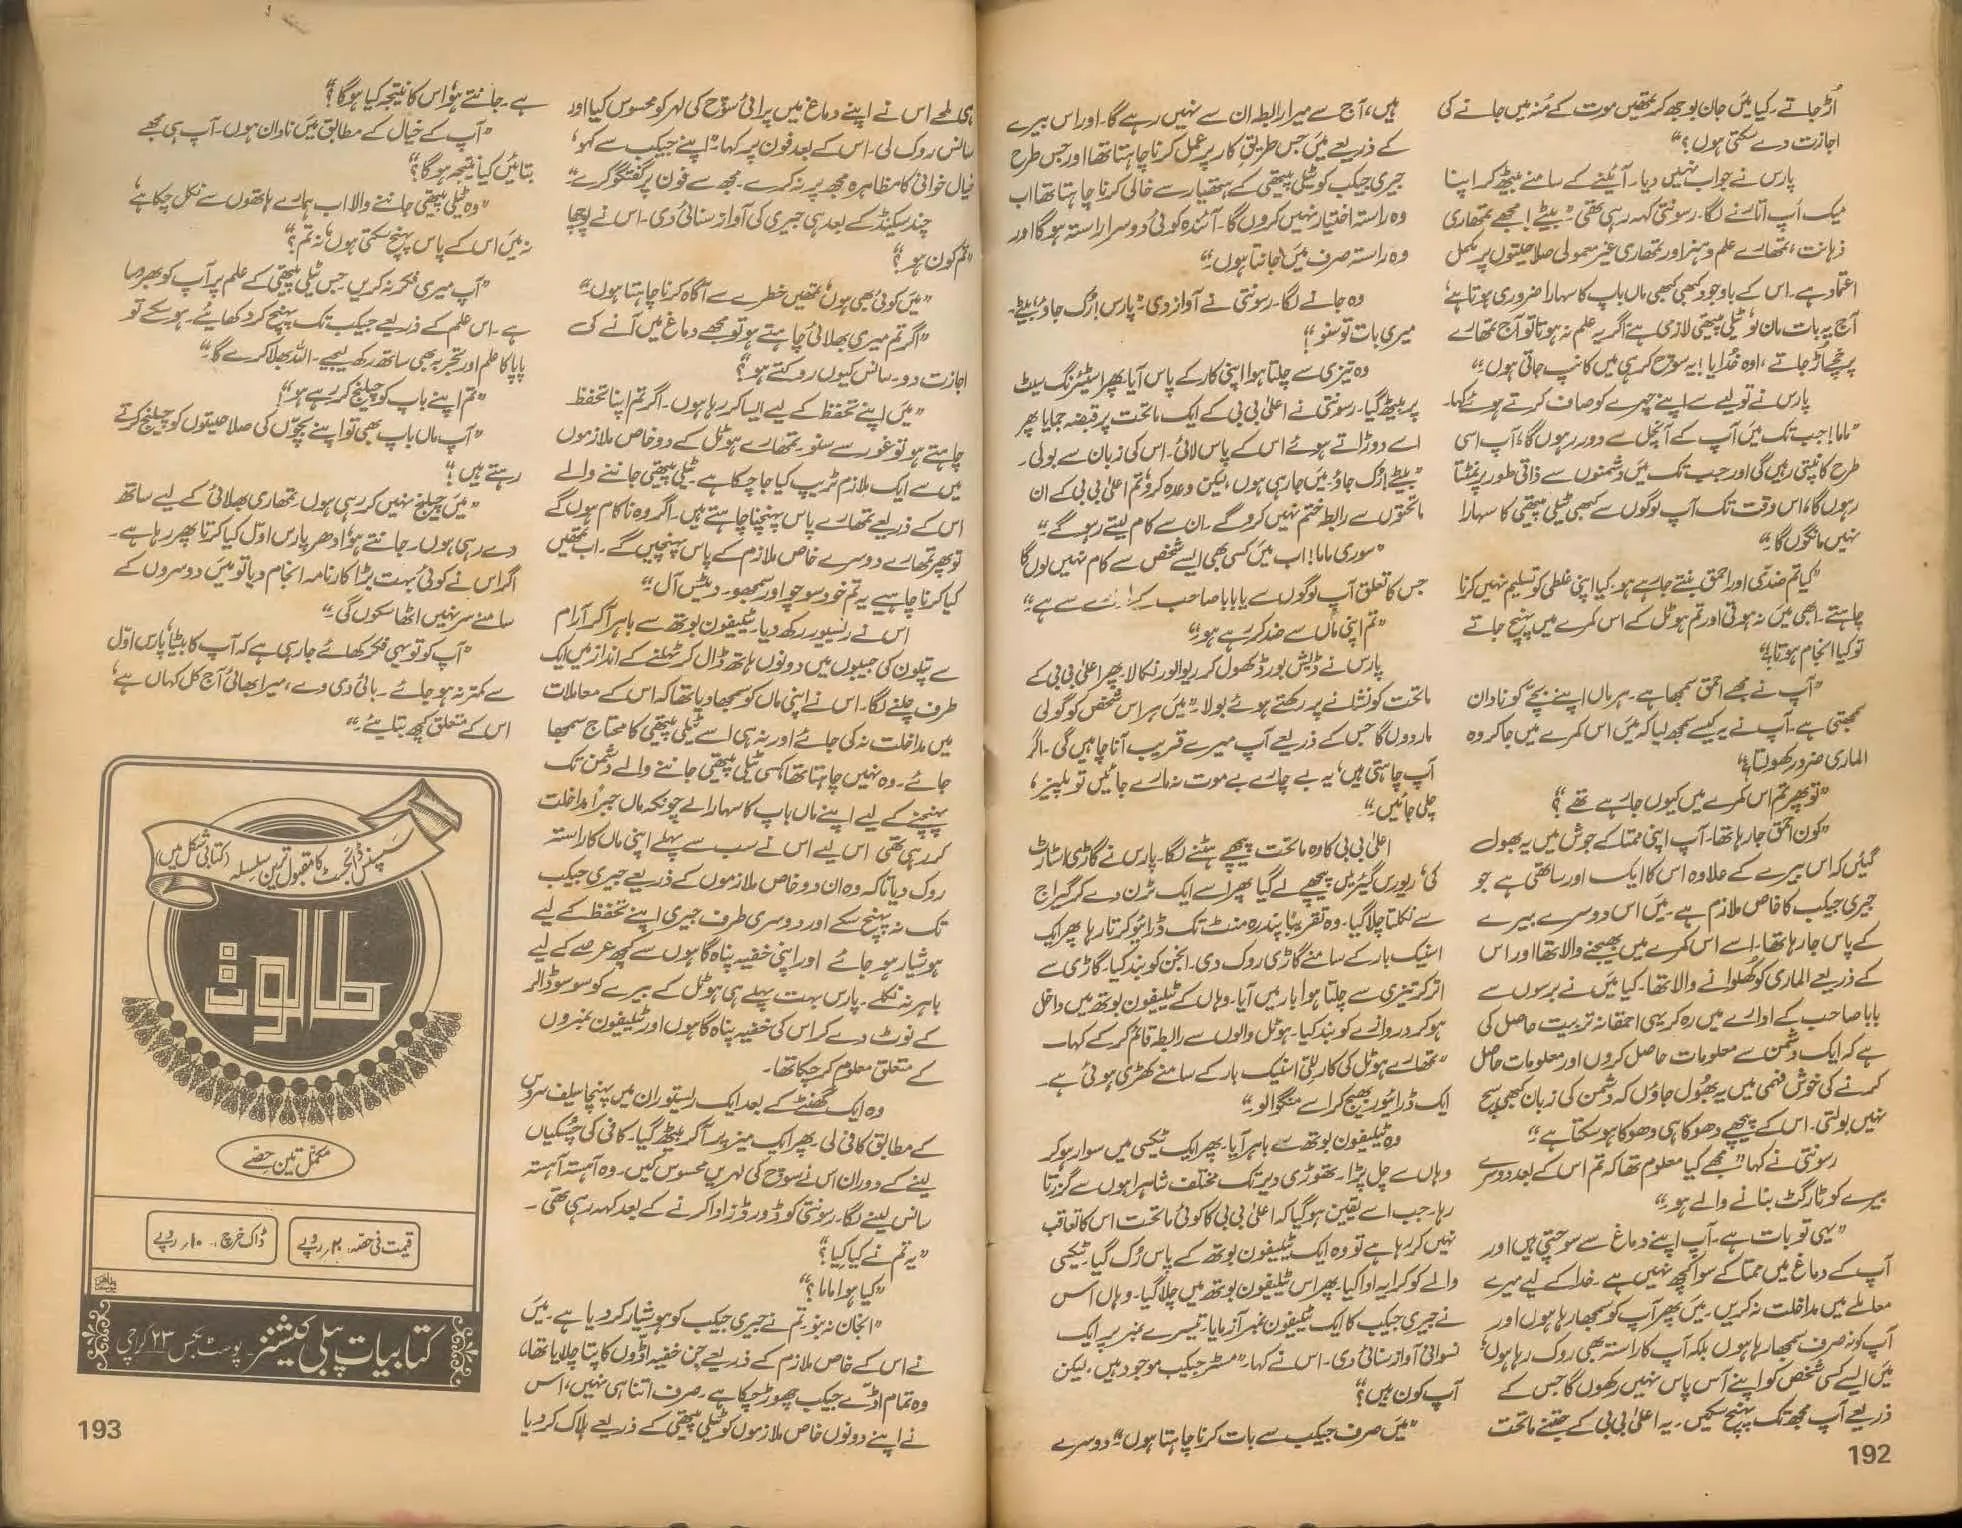 اُڑ جاتے۔ کیا میں جان بوجھ کر تمھیں موت کے مُنہ میں جانے کی
اجازت دے سکتی ہوں؟“
پارس نے جواب نہیں دیا۔ آئینے کے سامنے بیٹھ کر اپنا
میک اَپ اتارنے لگا۔ رسونتی کہہ رہی تھی۔ ”بیٹے! مجھے تمھاری
ذہانت، تمھارے علم و ہنر اور تمھاری غیر معمولی صلاحیتوں پر مکمل
اعتماد ہے۔ اس کے باوجود کبھی کبھی ماں باپ کا سہارا ضروری ہوتا ہے،
آج یہ بات مان لو، ٹیلی پیتھی لازمی ہے، اگر یہ علم نہ ہوتا تو آج تمھارے
پرخچے اُڑ جاتے، اوہ خُدایا! یہ سوچ کر ہی میں کانپ جاتی ہوں۔“
پارس نے تولیے سے اپنے چہرے کو صاف کرتے ہوئے کہا۔
”ماما! جب تک میں آپ کے آنچل سے دور رہوں گا، آپ اسی
طرح کانپتی رہیں گی اور جب تک میں دشمنوں سے ذاتی طور پر نمٹتا
رہوں گا، اس وقت تک آپ لوگوں سے کبھی ٹیلی پیتھی کا سہارا
نہیں مانگوں گا۔“
”کیا تم ضدّی اور احمق بنتے جا رہے ہو۔ کیا اپنی غلطی کو تسلیم نہیں کرنا
چاہتے۔ ابھی میں نہ ہوتی اور تم ہوٹل کے اس کمرے میں پہنچ جاتے
تو کیا انجام ہوتا؟“
”آپ نے مجھے احمق سمجھا ہے۔ ہر ماں اپنے بچّے کو نادان
سمجھتی ہے۔ آپ نے یہ کیسے سمجھ لیا کہ میں اس کمرے میں جا کر وہ
الماری ضرور کھولتا؟“
”تو پھر تم اس کمرے میں کیوں جا رہے تھے؟“
”کون احمق جا رہا تھا۔ آپ اپنی ممتا کے جوش میں یہ بھول
گئیں کہ اس بیرے کے علاوہ اس کا ایک اور ساتھی ہے جو
جیری جیکب کا خاص ملازم ہے۔ میں اس دوسرے بیرے
کے پاس جا رہا تھا۔ اسے اس کمرے میں بھیجنے والا تھا اور اس
کے ذریعے الماری کو کھُلوانے والا تھا۔ کیا میں نے برسوں سے
بابا صاحب کے ادارے میں رہ کر یہی احمقانہ تربیت حاصل کی
ہے کہ ایک دشمن سے معلومات حاصل کروں اور معلومات حاصل
کرنے کی خوش فہمی میں یہ بھُول جاؤں کہ دشمن کی زبان کبھی سچ
نہیں بولتی۔ اس کے پیچھے دھوکا ہی دھوکا ہو سکتا ہے۔“
رسونتی نے کہا ”مجھے کیا معلوم تھا کہ تم اس کے بعد دوسرے
بیرے کو ٹارگٹ بنانے والے ہو۔“
”یہی تو بات ہے۔ آپ اپنے دماغ سے سوچتی ہیں اور
آپ کے دماغ میں ممتا کے سوا کچھ نہیں ہے۔ خدا کے لیے میرے
معاملے میں مداخلت نہ کریں۔ میں پھر آپ کو سمجھا رہا ہوں اور
آپ کو نہ صرف سمجھا رہا ہوں بلکہ آپ کا راستہ بھی روک رہا ہوں،
میں ایسے کسی شخص کو اپنے آس پاس نہیں رکھوں گا جس کے
ذریعے آپ مجھ تک پہنچ سکیں۔ یہ اعلیٰ بی بی کے جتنے ماتحت
192
ہیں، آج سے میرا رابطہ ان سے نہیں رہے گا۔ اور اس بیرے
کے ذریعے میں جس طریقِ کار پر عمل کرنا چاہتا تھا اور جس طرح
جیری جیکب کو ٹیلی پیتھی کے ہتھیار سے خالی کرنا چاہتا تھا اب
وہ راستہ اختیار نہیں کروں گا۔ آئندہ کوئی دوسرا راستہ ہوگا اور
وہ راستہ صرف میں جانتا ہوں۔“
وہ جانے لگا۔ رسونتی نے آواز دی ”پارس! رُک جاؤ بیٹے۔
میری بات تو سنو!“
وہ تیزی سے چلتا ہوا اپنی کار کے پاس آیا۔ پھر اسٹیئرنگ سیٹ
پر بیٹھ گیا۔ رسونتی نے اعلیٰ بی بی کے ایک ماتحت پر قبضہ جمایا پھر
اسے دوڑاتے ہوئے اس کے پاس لائی۔ اس کی زبان سے بولی۔
”بیٹے! رُک جاؤ۔ میں جا رہی ہوں، لیکن وعدہ کرو، تم اعلیٰ بی بی کے ان
ماتحتوں سے رابطہ ختم نہیں کرو گے۔ ان سے کام لیتے رہو گے۔“
”سوری ماما! اب میں کسی بھی ایسے شخص سے کام نہیں لوں گا
جس کا تعلق آپ لوگوں سے یا بابا صاحب کے ادارے سے ہے۔“
”تم اپنی ماں سے ضد کر رہے ہو۔“
پارس نے ڈیش بورڈ کھول کر ریوالور نکالا۔ پھر اعلیٰ بی بی کے
ماتحت کو نشانے پر رکھتے ہوئے بولا۔ ”میں ہر اس شخص کو گولی
مار دوں گا جس کے ذریعے آپ میرے قریب آنا چاہیں گی۔ اگر
آپ چاہتی ہیں، یہ بے چارے بے موت نہ مارے جائیں تو پلیز،
چلی جائیں۔“
اعلیٰ بی بی کا وہ ماتحت پیچھے ہٹنے لگا۔ پارس نے گاڑی اسٹارٹ
کی، ریورس گیئر میں پیچھے لے گیا پھر اسے ایک ٹرن دے کر گیراج
سے نکلتا چلا گیا۔ وہ تقریباً پندرہ منٹ تک ڈرائیو کرتا رہا پھر ایک
اسنیک بار کے سامنے گاڑی روک دی۔ انجن کو بند کیا۔ گاڑی سے
اتر کر تیزی سے چلتا ہوا بار میں آیا۔ وہاں کے ٹیلیفون بوتھ میں داخل
ہو کر دروازے کو بند کیا۔ ہوٹل والوں سے رابطہ قائم کر کے کہا۔
”تمھارے ہوٹل کی کار لِلی اسنیک بار کے سامنے کھڑی ہوئی ہے۔
ایک ڈرائیور بھیج کر اسے منگوا لو۔“
وہ ٹیلیفون بوتھ سے باہر آیا۔ پھر ایک ٹیکسی میں سوار ہو کر
وہاں سے چل پڑا۔ تھوڑی دیر تک مختلف شاہراہوں سے گزرتا
رہا۔ جب اسے یقین ہو گیا کہ اعلیٰ بی بی کا کوئی ماتحت اس کا تعاقب
نہیں کر رہا ہے تو وہ ایک ٹیلیفون بوتھ کے پاس رُک گیا۔ ٹیکسی
والے کو کرایہ ادا کیا۔ پھر اس ٹیلیفون بوتھ میں چلا گیا۔ وہاں اس
نے جیری جیکب کا ایک ٹیلیفون نمبر آزمایا۔ تیسرے نمبر پر ایک
نسوانی آواز سنائی دی۔ اس نے کہا۔ ”مسٹر جیکب موجود ہیں، لیکن
آپ کون ہیں؟“
”میں صرف جیکب سے بات کرنا چاہتا ہوں“ دوسرے
ہی لمحے اس نے اپنے دماغ میں پرائی سوچ کی لہر کو محسوس کیا اور
سانس روک لی۔ اس کے بعد فون پر کہا۔ ”اپنے جیکب سے کہو،
خیال خوانی کا مظاہرہ مجھ پر نہ کرے۔ مجھ سے فون پر گفتگو کرے“
چند سیکنڈ کے بعد ہی جیری کی آواز سنائی دی۔ اس نے پوچھا
”تم کون ہو؟“
”میں کوئی بھی ہوں، تمھیں خطرے سے آگاہ کرنا چاہتا ہوں۔“
”اگر تم میری بھلائی چاہتے ہو تو مجھے دماغ میں آنے کی
اجازت دو۔ سانس کیوں روکتے ہو؟“
”میں اپنے تحفظ کے لیے ایسا کر رہا ہوں۔ اگر تم اپنا تحفظ
چاہتے ہو تو غور سے سنو۔ تمھارے ہوٹل کے دو خاص ملازموں
میں سے ایک ملازم ٹریپ کیا جا چکا ہے۔ ٹیلی پیتھی جاننے والے
اس کے ذریعے تمھارے پاس پہنچنا چاہتے ہیں۔ اگر وہ ناکام ہوں گے
تو پھر تمھارے دوسرے خاص ملازم کے پاس پہنچیں گے۔ اب تمھیں
کیا کرنا چاہیے یہ تم خود سوچو اور سمجھو۔ دیٹس آل۔“
اس نے رسیور رکھ دیا۔ ٹیلیفون بوتھ سے باہر آ کر آرام
سے پتلون کی جیبوں میں دونوں ہاتھ ڈال کر ٹہلنے کے انداز میں ایک
طرف چلنے لگا۔ اس نے اپنی ماں کو سمجھا دیا تھا کہ اس کے معاملات
میں مداخلت نہ کی جائے اور نہ ہی اسے ٹیلی پیتھی کا محتاج سمجھا
جائے۔ وہ نہیں چاہتا تھا کسی ٹیلی پیتھی جاننے والے دشمن تک
پہنچنے کے لیے اپنے ماں باپ کا سہارا لے چونکہ ماں جبراً مداخلت
کر رہی تھی اس لیے اس نے سب سے پہلے اپنی ماں کا راستہ
روک دیا تاکہ وہ ان دو خاص ملازموں کے ذریعے جیری جیکب
تک نہ پہنچ سکے اور دوسری طرف جیری اپنے تحفظ کے لیے
ہوشیار ہو جائے اور اپنی خفیہ پناہ گاہوں سے کچھ عرصے کے لیے
باہر نہ نکلے۔ پارس بہت پہلے ہی ہوٹل کے بیرے کو سو سو ڈالر
کے نوٹ دے کر اس کی خفیہ پناہ گاہوں اور ٹیلیفون نمبروں
کے متعلق معلوم کر چکا تھا۔
وہ ایک گھنٹے کے بعد ایک ریستوران میں پہنچا سیلف سروس
کے مطابق کافی لی۔ پھر ایک میز پر آ کر بیٹھ گیا۔ کافی کی چسکیاں
لینے کے دوران اس نے سوچ کی لہریں محسوس کیں۔ وہ آہستہ آہستہ
سانس لینے لگا۔ رسونتی کوڈ ورڈز ادا کرنے کے بعد کہہ رہی تھی۔
”یہ تم نے کیا کِیا؟“
”کیا ہوا ماما؟“
”انجان نہ بنو۔ تم نے جیری جیکب کو ہوشیار کر دیا ہے۔ میں
نے اس کے خاص ملازم کے ذریعے جن خفیہ اڈّوں کا پتا چلایا تھا،
وہ تمام اڈّے جیکب چھوڑ چکا ہے۔ صرف اتنا ہی نہیں، اس
نے اپنے دونوں خاص ملازموں کو ٹیلی پیتھی کے ذریعے ہلاک کر دیا
ہے۔ جانتے ہو، اس کا نتیجہ کیا ہوگا؟“
”آپ کے خیال کے مطابق میں نادان ہوں۔ آپ ہی مجھے
بتائیں کیا نتیجہ ہوگا؟“
”وہ ٹیلی پیتھی جاننے والا اب ہمارے ہاتھوں سے نکل چکا ہے،
نہ میں اس کے پاس پہنچ سکتی ہوں، نہ تم؟“
”آپ میری فکر نہ کریں۔ جس ٹیلی پیتھی کے علم پر آپ کو بھروسا
ہے۔ اس علم کے ذریعے جیکب تک پہنچ کر دکھائیے۔ ہو سکے تو
پاپا کا علم اور تجربہ بھی ساتھ رکھ لیجیے۔ اللہ بھلا کرے گا۔“
”تم اپنے باپ کو چیلنج کر رہے ہو؟“
”آپ ماں باپ بھی تو اپنے بچّوں کی صلاحیتوں کو چیلنج کرتے
رہتے ہیں!“
”میں چیلنج نہیں کر رہی ہوں۔ تمھاری بھلائی کے لیے ساتھ
دے رہی ہوں۔ جانتے ہو، ادھر پارس اوّل کیا کرتا پھر رہا ہے۔
اگر اس نے کوئی بہت بڑا کارنامہ انجام دیا تو میں دوسروں کے
سامنے سر نہیں اٹھا سکوں گی۔“
”آپ کو تو یہی فکر کھائے جا رہی ہے کہ آپ کا بیٹا پارس اوّل
سے کمتر نہ ہو جائے۔ بائی دی وے، میرا بھائی آج کل کہاں ہے،
اس کے متعلق کچھ بتایئے۔“
سسپنس ڈائجسٹ کا مقبول ترین سلسلہ (کتابی شکل میں)
طالوت
مکمّل تین حِصّے
قیمت فی حصّہ: ۲۰ روپے
ڈاک خرچ: ۱۰ روپے
کتابیات پبلی کیشنز۔ پوسٹ بکس ۲۳ کراچی
193